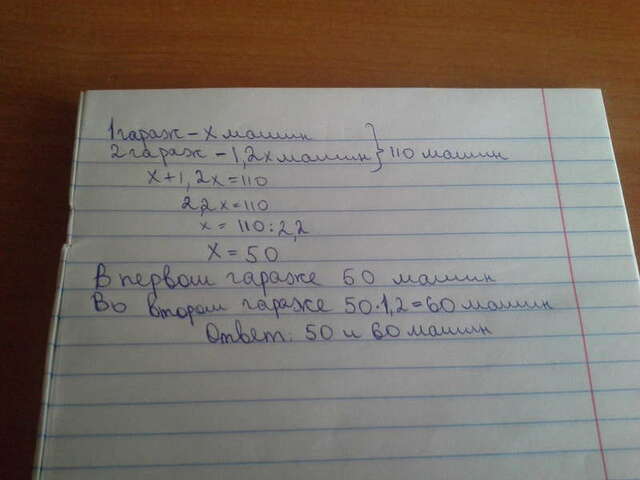 1 гараж - х машин
2 гараж - 1,2х машин } 110 машин
х+1,2х=110
2,2х=110
х = 110:2,2
х = 50
В первом гараже 50 машин
Во втором гараже 50·1,2=60 машин
Ответ: 50 и 60 машин